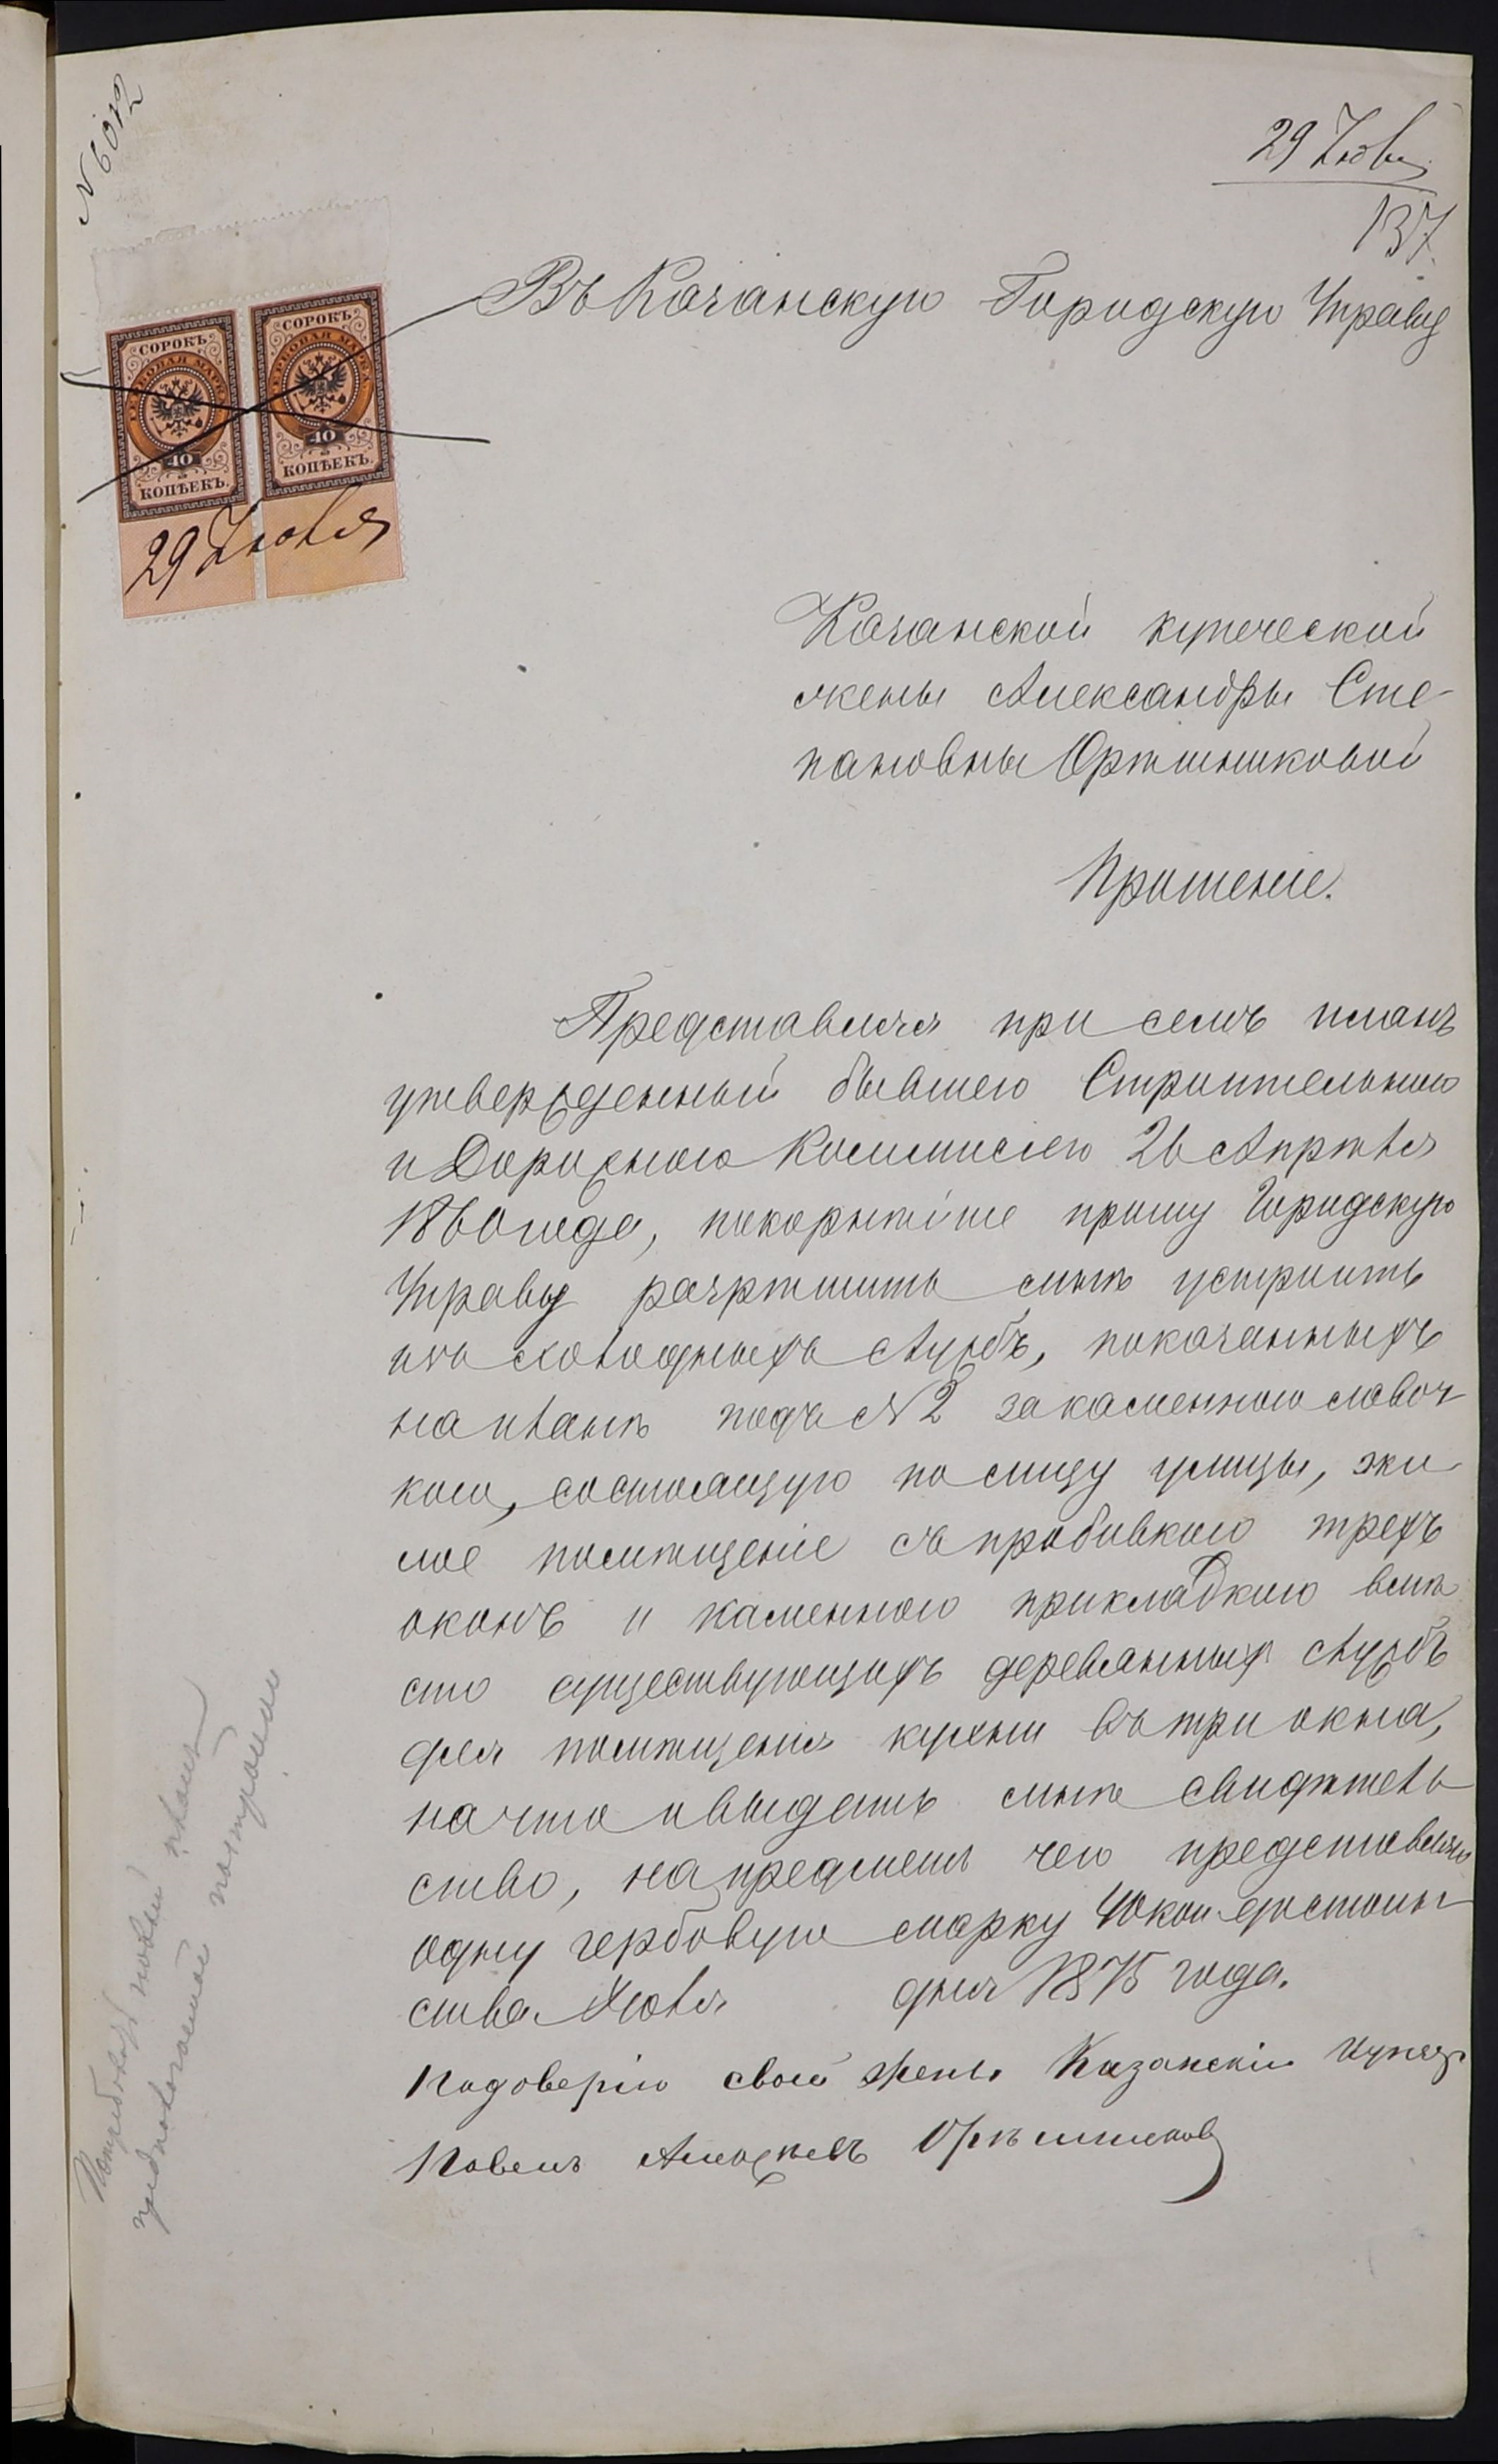 № 6072
29 Июля
137
Въ Казанскую Городскую Управу
СОРОКЪ
ГЕРБОВАЯ МАРКА
40
КОПѢЕКЪ.
СОРОКЪ
ГЕРБОВАЯ МАРКА
40
КОПѢЕКЪ.
29 Июля
Казанской купеческой
жены Александры Сте-
пановны Орѣшниковой
Прошеніе.
Представляя при семъ планъ
утвержденный бывшею Строительною
и Дорожною Коммисіею 26 Апрѣля
1860 года, покорнѣйше прошу Городскую
Управу разрѣшить мнѣ устроить
изъ холодныхъ службъ, показанныхъ
на планѣ подъ № 2 за каменною лавоч
кою, состоящую по лицу улицы, жи
лое помѣщеніе съ пробивкою трехъ
оконъ и каменною прикладкою вмѣ
сто существующихъ деревянныхъ службъ
для помѣщенія кухни въ три окна,
на что и выдать мнѣ свидѣтель
ство, на предметъ чего представляю
одну гербовую марку 40 коп достоин
ства Июля дня 1875 года.
Подоверію своей жены Казанскій Купецъ
Павелъ Орѣшниковъ
Потребовать новый планъ
предполагаемой постройки